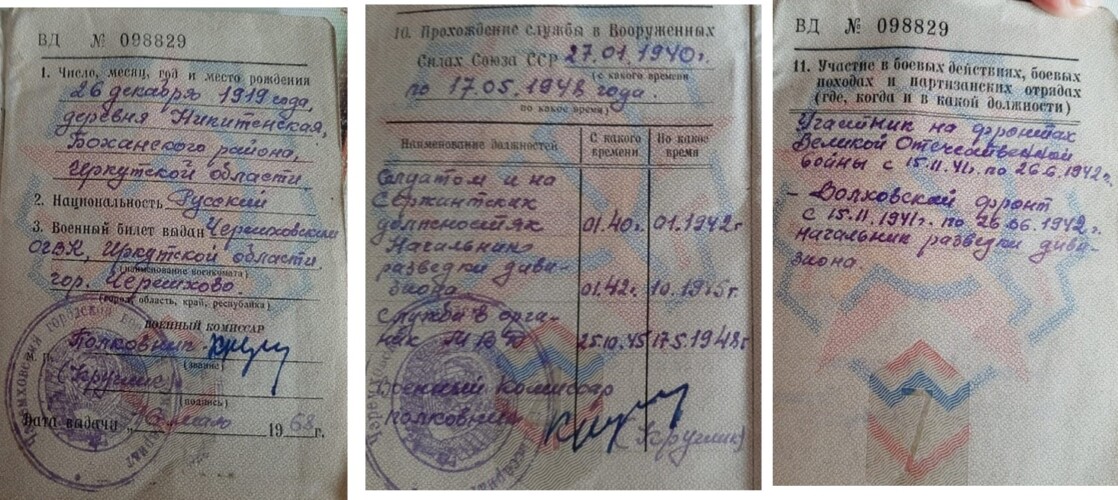 ВД № 098829
1. Число, месяц, год и место рождения
26 декабря 1919 года,
деревня Никитенская,
Боханского района,
Иркутской области
2. Национальность Русский
3. Военный билет выдан Черемховским
ОГВК, Иркутской области
(наименование военкомата)
гор. Черемхово.
(город, область, край, республика)
ВОЕННЫЙ КОМИССАР
Полковник
(звание)
(Круглик)
(подпись)
Дата выдачи „16 мая 1968 г.
10. Прохождение службы в Вооруженных
Силах Союза ССР 27.01.1940г.
(с какого времени
по 17.05.1948 года.
по какое время)
Наименование должностей
С какого времени
По какое время
Солдатом и на
Сержантских
должностях 01.40г. 01.1942г.
Начальник
разведки диви-
зиона 01.42г. 10.1945г.
Служба в орга-
нах МВД 25.10.45 17.5.1948г.
Военный комиссар
полковник
(Круглик)
ВД № 098829
11. Участие в боевых действиях, боевых
походах и партизанских отрядах
(где, когда и в какой должности)
Участник на фронтах
Великой Отечественной
войны с 15.11.41г. по 26.6.1942г.
– Волховской фронт
с 15.11.1941г. по 26.06.1942г.
начальник разведки диви-
зиона